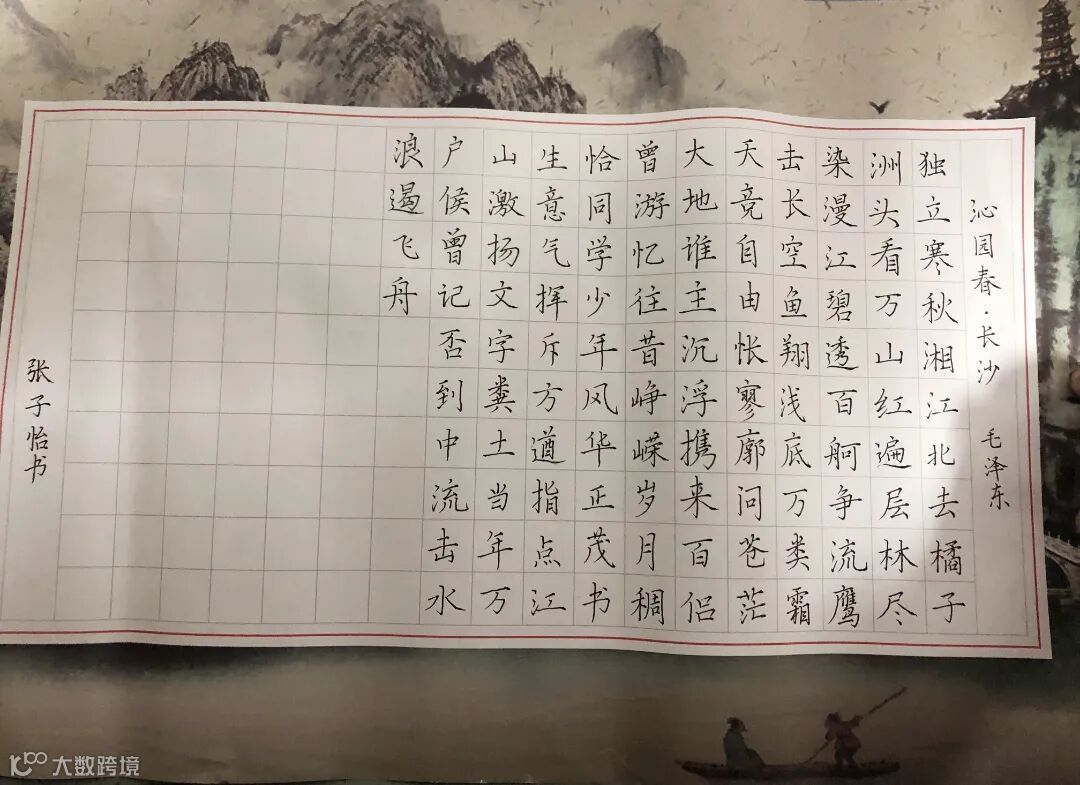 沁园春·长沙 毛泽东
独立寒秋湘江北去橘子
洲头看万山红遍层林尽
染漫江碧透百舸争流鹰
击长空鱼翔浅底万类霜
天竞自由怅寥廓问苍茫
大地谁主沉浮携来百侣
曾游忆往昔峥嵘岁月稠
恰同学少年风华正茂书
生意气挥斥方遒指点江
山激扬文字粪土当年万
户侯曾记否到中流击水
浪遏飞舟
张子怡书
大数跨境